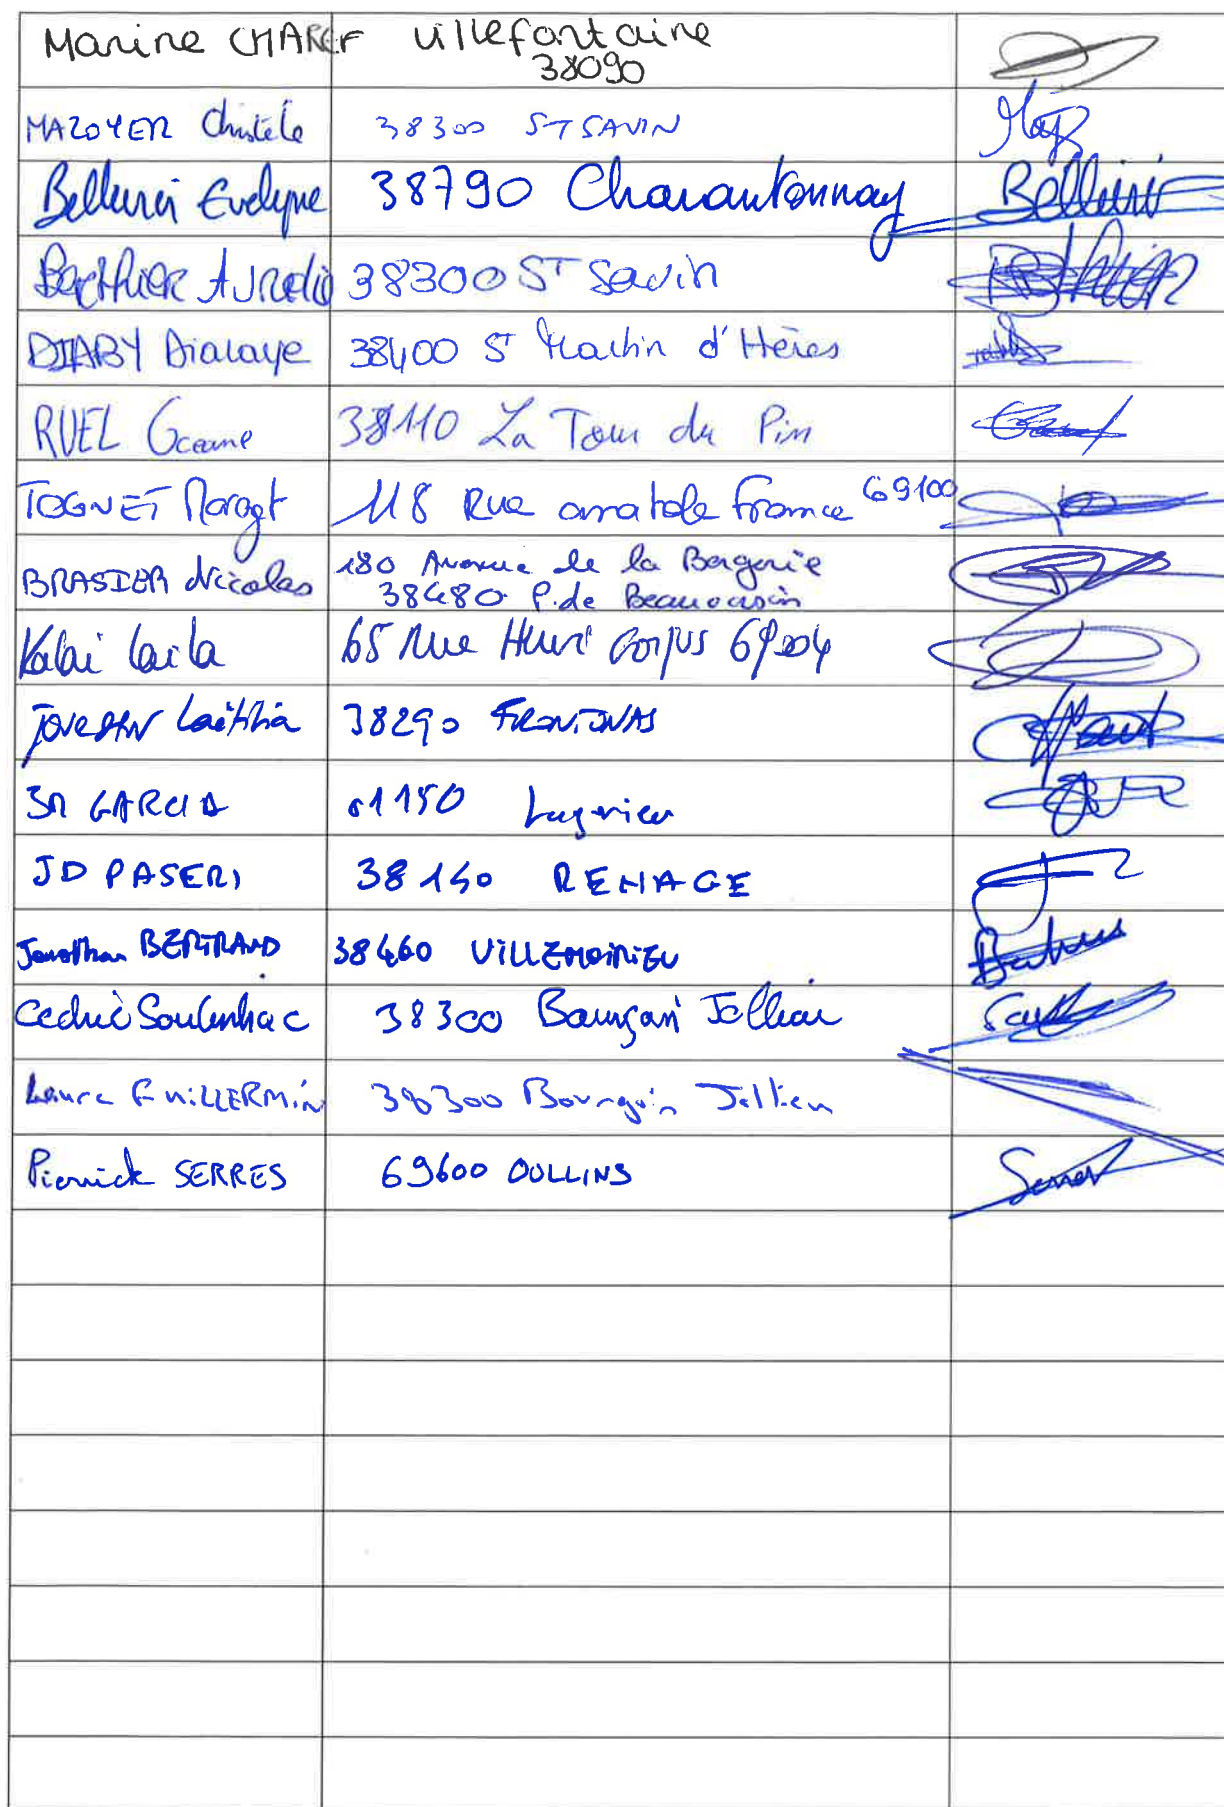 Marine CHAREF Villefontaine
38090
MAZOYER Christèle 38300 ST SAVIN
Belluri Evelyne 38790 Charantonnay Belluri
Berthier Aurélie 38300 ST Savin
DIABY Dialaye 38400 ST Martin d'Hères
RUEL Oceane 38110 La Tour du Pin
TOGNET Margot 118 Rue anatole France 69100
BRASIER Nicolas 180 Avenue de la Bergerie
38480 P. de Beauvoisin
Kalai Laila 65 rue Henri Gorjus 69004
Laëtitia 38290 FRONTONAS
GARCIA 01150 Lagnieu
JD PASERI 38140 RENAGE
Jonathan BERTRAND 38460 VILLEMOIRIEU
Cedric Soulenhac 38300 Bourgoin Jallieu
Laure GUILLERMIN 38300 Bourgoin Jallieu
Pierrick SERRES 69600 OULLINS